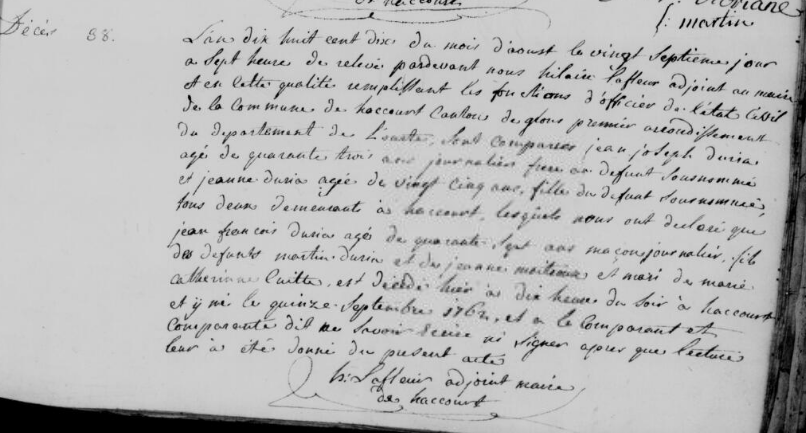 et haccourt
f: martin
Décès 88.
L'an dix huit cent dix du mois d'aoust le vingt septieme jour
a sept heure de relevé pardevant nous hilaire Lafleur adjoint au maire
et en cette qualité remplissant les fonctions d'officier de l'état Civil
de la Commune de haccourt Canton de glons premier arrondissement
du departement de L'ourte, sont comparus jean joseph duria
agé de quarante trois ans journaliers frere au defunt sousnommé
et jeanne duria agée de vingt cinq ans, fille du defunt sousnommé,
tous deux demeurants à haccourt, lesquels nous ont declaré que
jean francois duria agé de quarante sept ans maçon journalier, fils
des defunts martin duria et de jeanne et mari de marie
catherinne est décédé hier à dix heure du soir à haccourt
et y né le quinze septembre 1762, et a le Comparant et
Comparante dit ne savoir Ecrire ni signer apres que lecture
leur à été donné du present acte
h: Lafleur adjoint maire
de haccourt